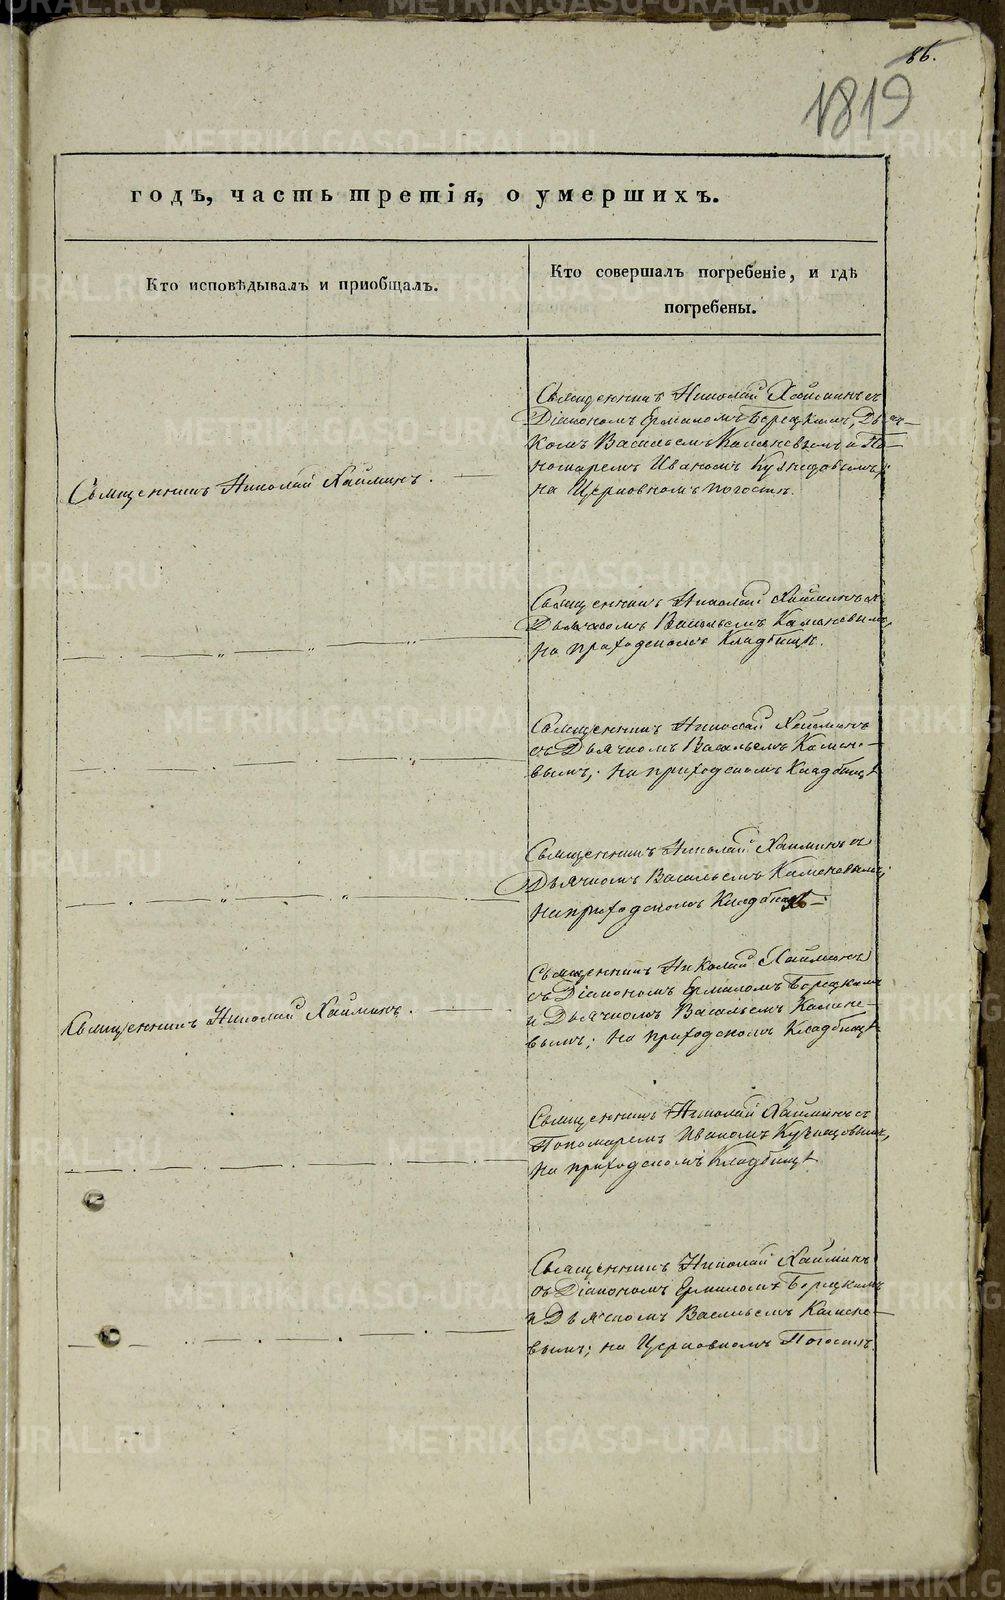 86.
1819
годъ, часть третія, о умершихъ.
Кто исповѣдывалъ и приобщалъ.
Кто совершалъ погребеніе, и гдѣ
погребены.
Священникъ Николай Хайминъ.
Священникъ Николай Хайминъ съ
Діакономъ Ермиломъ Борецкимъ, Дьяч-
комъ Васильемъ Каменевымъ и По-
номаремъ Иваномъ Кузнецовымъ;
на Церковномъ погостѣ.
Священникъ Николай Хайминъ съ
Дьячкомъ Васильемъ Каменевымъ,
на приходскомъ Кладбищѣ.
Священникъ Николай Хайминъ
съ Дьячкомъ Васильемъ Камене-
вымъ; на приходскомъ Кладбищѣ
Священникъ Николай Хайминъ съ
Дьячкомъ Васильемъ Каменевымъ;
на приходскомъ Кладбищѣ
Священникъ Николай Хайминъ.
Священникъ Николай Хайминъ
съ Діакономъ Ермиломъ Борецкимъ
и Дьячкомъ Васильемъ Камене-
вымъ; на приходскомъ Кладбищѣ
Священникъ Николай Хайминъ съ
Пономаремъ Иваномъ Кузнецовымъ,
на приходскомъ Кладбищѣ
Священникъ Николай Хайминъ
съ Діакономъ Ермиломъ Борецкимъ
и Дьячкомъ Васильемъ Камене-
вымъ; на Церковномъ Погостѣ.
METRIKI.GASO-URAL.RU